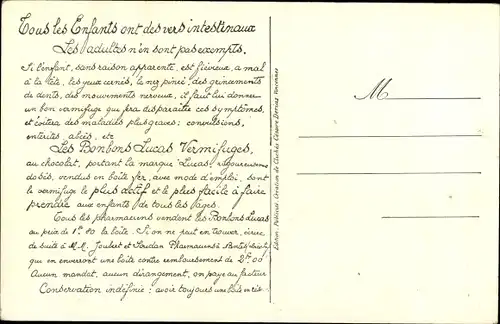 Tous les Enfants ont des vers intestinaux
Les adultes n'en sont pas exempts.
Si l'enfant, sans raison apparente, est fiévreux, a mal
à la tête, les yeux cernés, le nez pincé, des grincements
de dents, des mouvements nerveux, il faut lui donner
un bon vermifuge qui fera disparaître ces symptômes,
et évitera des maladies plus graves: convulsions,
entérites, abcès, etc
Les Bonbons Lucas Vermifuges,
au chocolat, portant la marque "Lucas", rigoureusement
dosés, vendus en boîte fer, avec mode d'emploi, sont
le vermifuge le plus actif et le plus facile à faire
prendre aux enfants de tous les âges.
Tous les pharmaciens vendent les Bonbons Lucas
au prix de 1f. 80 la boîte. Si on ne peut en trouver, écrire
de suite à M.M. Joubert et Soudan Pharmaciens à
qui en enverront une boîte contre remboursement de 2f.00
Aucun mandat, aucun dérangement, on paye au facteur
Conservation indéfinie: avoir toujours une boîte en
Edition Publicis Création de Clichés Vincennes
M